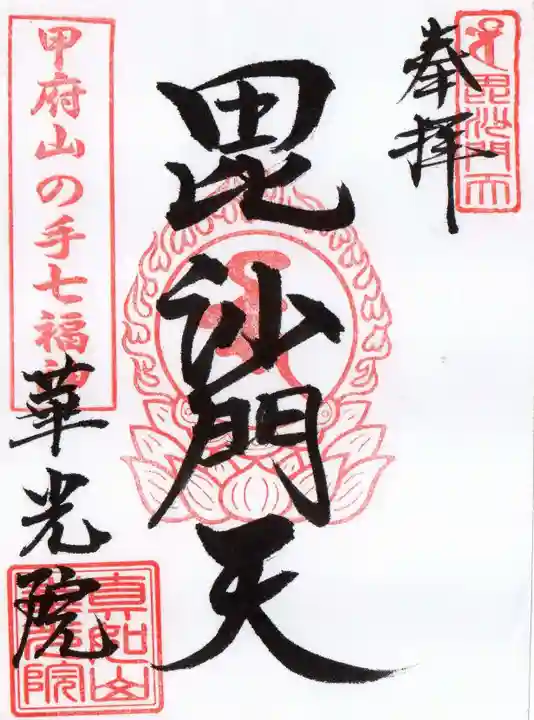 奉拝
毘沙門天
毘沙門天
甲府山の手七福神
華光院
真如山
華光院